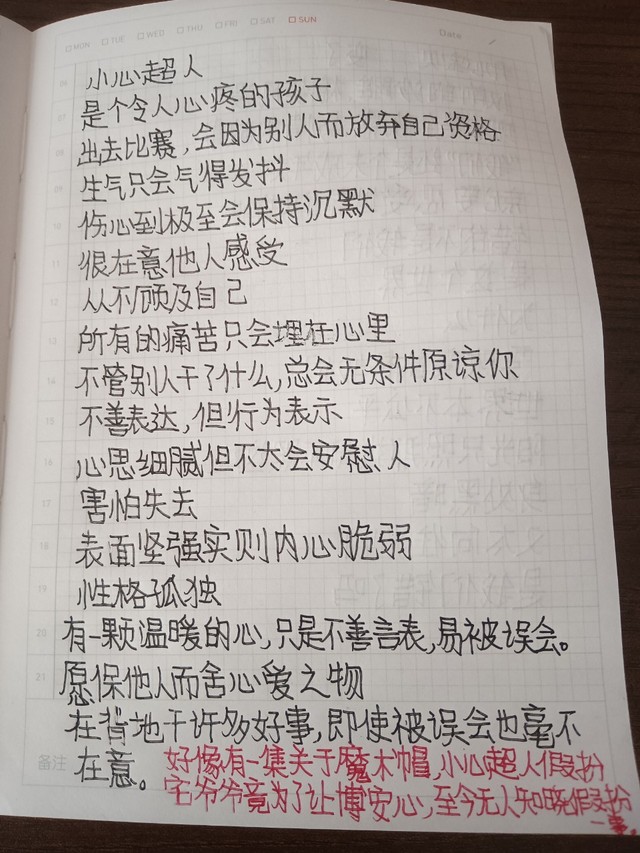 MON TUE WED THU FRI SAT SUN
Date
小心超人
是个令人心疼的孩子
出去比赛，会因为别人而放弃自己资格
生气只会气得发抖
伤心到极至会保持沉默
很在意他人感受
从不顾及自己
所有的痛苦只会埋在心里
不管别人干了什么，总会无条件原谅你
不善表达，但行为表示
心思细腻但不太会安慰人
害怕失去
表面坚强实则内心脆弱
性格孤独
有一颗温暖的心，只是不善言表，易被误会。
愿保他人而舍心爱之物
在背地干许多好事，即使被误会也毫不
备注 在意。好像有一集关于魔术帽，小心超人假扮
宅爷爷竟为了让博安心，至今无人知晓假扮
一事。